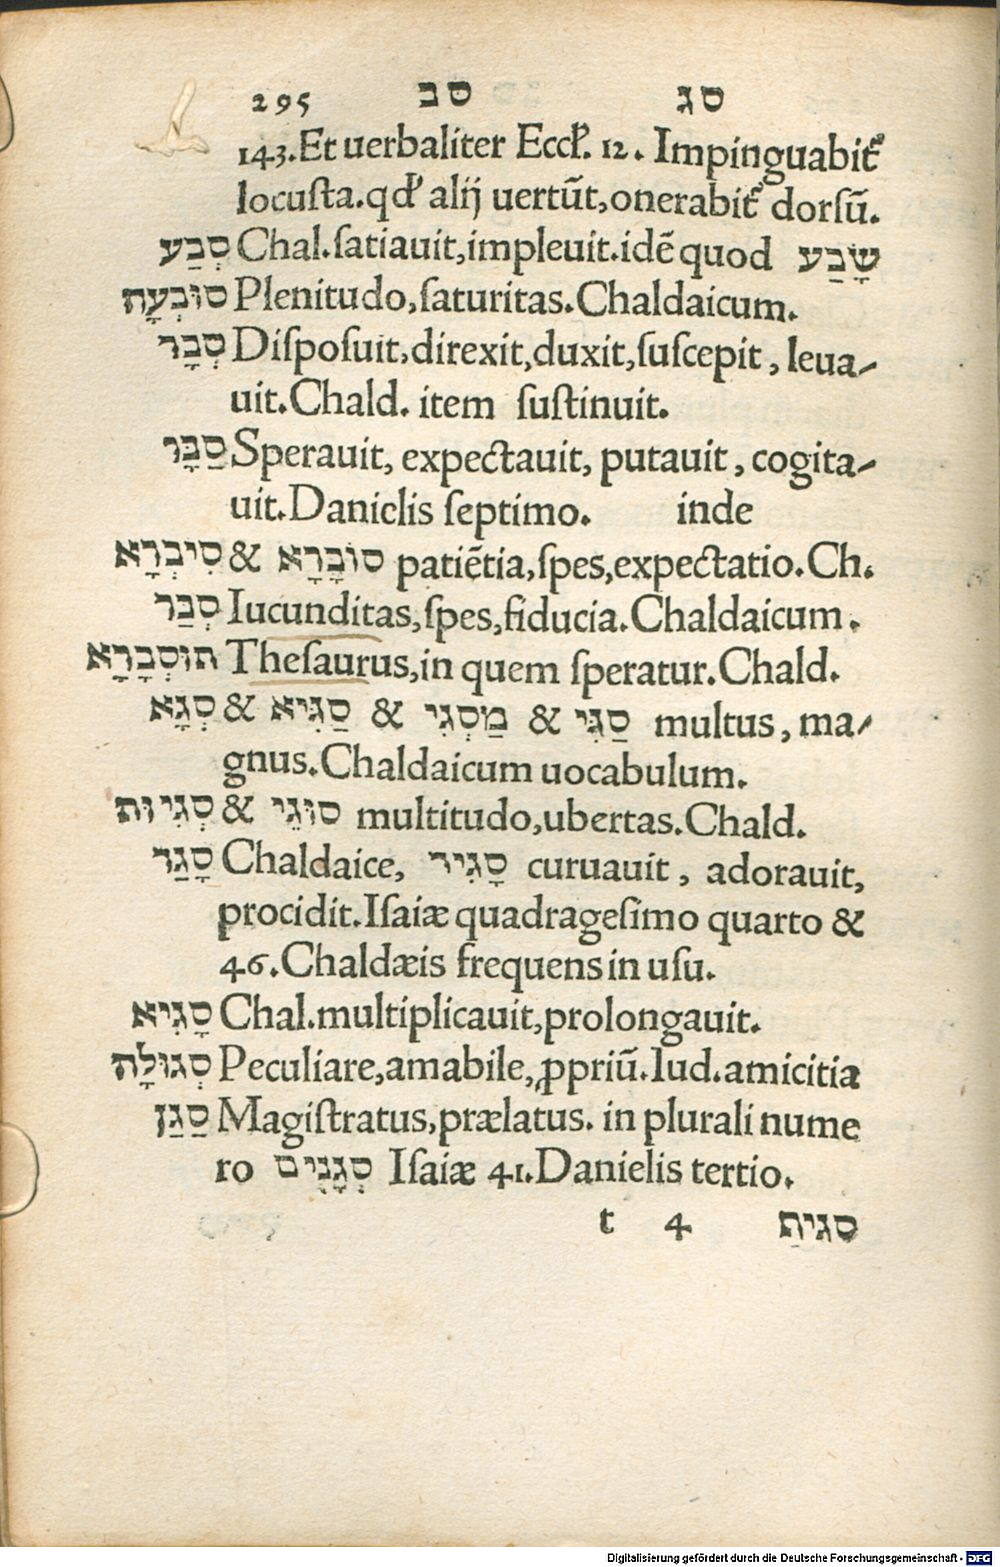 295 סב סג
143. Et uerbaliter Eccl̛. 12. Impinguabit᷒
locuſta. qd̛ alij uertūt, onerabit᷒ dorſū.
סְבַע Chal. ſatiauit, impleuit. idē quod שָׂבַע
סוּבְעָה Plenitudo, ſaturitas. Chaldaicum.
סְבָר Diſpoſuit, direxit, duxit, ſuſcepit, leua-
uit. Chald. item ſuſtinuit.
סַבָּר Sperauit, expectauit, putauit, cogita-
uit. Danielis ſeptimo. inde
סִיבְרָא & סוֹבָרָא patiētia, ſpes, expectatio. Ch.
סְבַר Iucunditas, ſpes, fiducia. Chaldaicum.
תוּסְבָרָא Theſaurus, in quem ſperatur. Chald.
סְגָא & סַגִּיא & מַסְגִי & סַגִּי multus, ma-
gnus. Chaldaicum uocabulum.
סְגִיוּת & סוּגֵי multitudo, ubertas. Chald.
סָגַד Chaldaice, סָגִיד curuauit, adorauit,
procidit. Iſaiæ quadrageſimo quarto &
46. Chaldæis frequens in uſu.
סָגִיא Chal. multiplicauit, prolongauit.
סְגוּלָה Peculiare, amabile, ꝓpriū. Iud. amicitia
סַגַן Magiſtratus, prælatus. in plurali nume
ro סְגָנִים Iſaiæ 41. Danielis tertio.
t 4 סגית
Digitalisierung gefördert durch die Deutsche Forschungsgemeinschaft - DFG